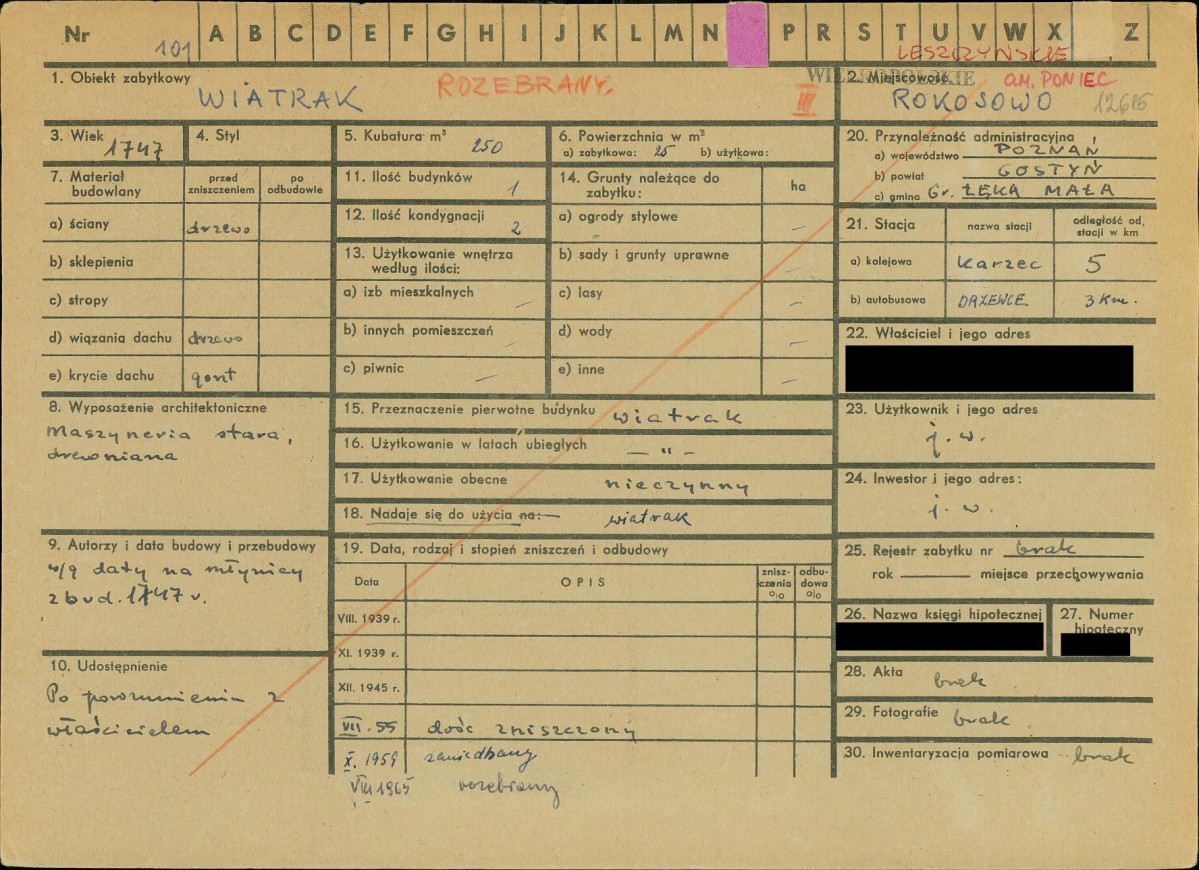 Nr 101 A B C D E F G H I J K L M N P R S T U V W X Z
LESZCZYŃSKIE
WIELKOPOLSKIE
1. Obiekt zabytkowy
WIATRAK
ROZEBRANY.
III
2. Miejscowość
gm. PONIEC
ROKOSOWO 12615
3. Wiek
1747
4. Styl
5. Kubatura m³
250
6. Powierzchnia w m²
a) zabytkowa: 25 b) użytkowa:
20. Przynależność administracyjna
a) województwo POZNAŃ
b) powiat GOSTYŃ
c) gmina Gr. ŁĘKA MAŁA
7. Materiał budowlany
przed zniszczeniem
po odbudowie
a) ściany drzewo
b) sklepienia
c) stropy
d) wiązania dachu drzewo
e) krycie dachu gont
11. Ilość budynków 1
12. Ilość kondygnacji 2
13. Użytkowanie wnętrza
według ilości:
a) izb mieszkalnych –
b) innych pomieszczeń –
c) piwnic –
14. Grunty należące do
zabytku:
ha
a) ogrody stylowe –
b) sady i grunty uprawne –
c) lasy –
d) wody –
e) inne –
21. Stacja
nazwa stacji
odległość od stacji w km
a) kolejowa Karzec 5
b) autobusowa DRZEWCE 3 km.
22. Właściciel i jego adres
8. Wyposażenie architektoniczne
Maszyneria stara,
drewniana
15. Przeznaczenie pierwotne budynku wiatrak
16. Użytkowanie w latach ubiegłych – " –
17. Użytkowanie obecne nieczynny
18. Nadaje się do użycia na: wiatrak
23. Użytkownik i jego adres
j. w.
24. Inwestor i jego adres:
j. w.
9. Autorzy i data budowy i przebudowy
w/g daty na młynicy
zbud. 1747 r.
19. Data, rodzaj i stopień zniszczeń i odbudowy
Data
OPIS
znisz-
czenia
%
odbu-
dowa
%
VIII. 1939 r.
XI. 1939 r.
XII. 1945 r.
VII. 55 dość zniszczony
X. 1959 zaniedbany
VIII 1965 rozebrany
25. Rejestr zabytku nr brak
rok miejsce przechowywania
26. Nazwa księgi hipotecznej
27. Numer
hipoteczny
10. Udostępnienie
Po porozumieniu z
właścicielem
28. Akta brak
29. Fotografie brak
30. Inwentaryzacja pomiarowa brak